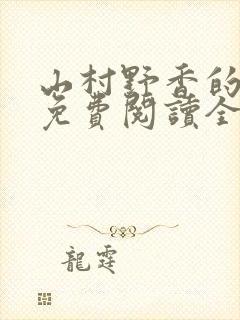 山村野香的
免費閱讀全
龍霆